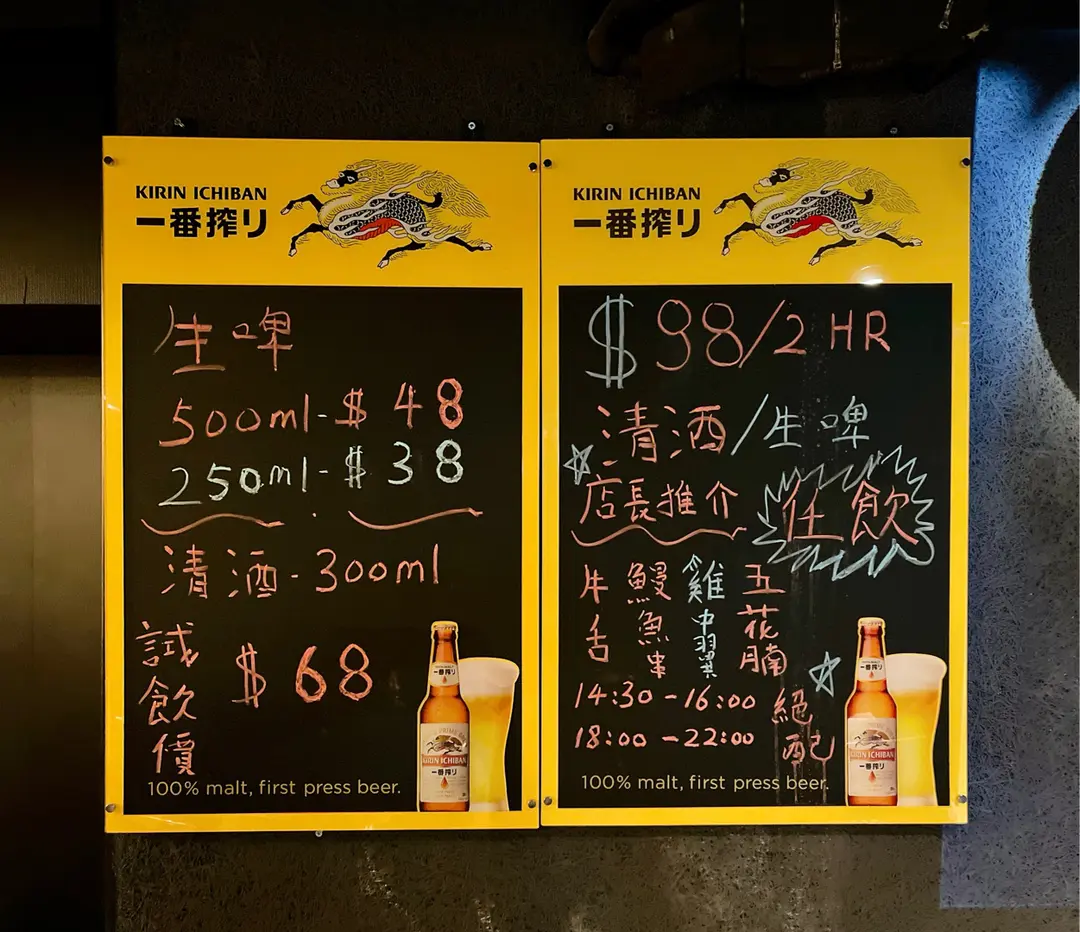 KIRIN ICHIBAN
一番搾り
生啤
500ml-$48
250ml-$38
清酒-300ml
試飲價
$68
100% malt, first press beer.
KIRIN ICHIBAN
一番搾り
$98/2HR
清酒/生啤
任飲
店長推介
牛舌
鰻魚串
雞中翼
五花腩
絕配
14:30-16:00
18:00-22:00
100% malt, first press beer.
KIRIN ICHIBAN
一番搾り
KIRIN ICHIBAN
一番搾り